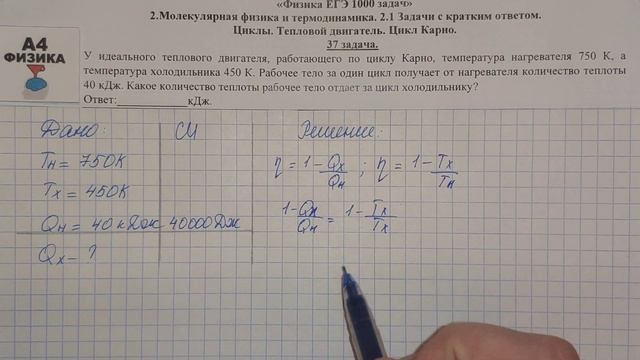 «Физика ЕГЭ 1000 задач»
2.Молекулярная физика и термодинамика. 2.1 Задачи с кратким ответом.
Циклы. Тепловой двигатель. Цикл Карно.
37 задача.
А4
ФИЗИКА
У идеального теплового двигателя, работающего по циклу Карно, температура нагревателя 750 К, а
температура холодильника 450 К. Рабочее тело за один цикл получает от нагревателя количество теплоты
40 кДж. Какое количество теплоты рабочее тело отдает за цикл холодильнику?
Ответ:____________кДж.
Дано: СИ Решение:
Tн = 750К
Tх = 450К
Qн = 40 кДж 40000Дж
Qх - ?
η = 1 - Qх/Qн ; η = 1 - Tх/Tн
1 - Qх/Qн = 1 - Tх/Tх